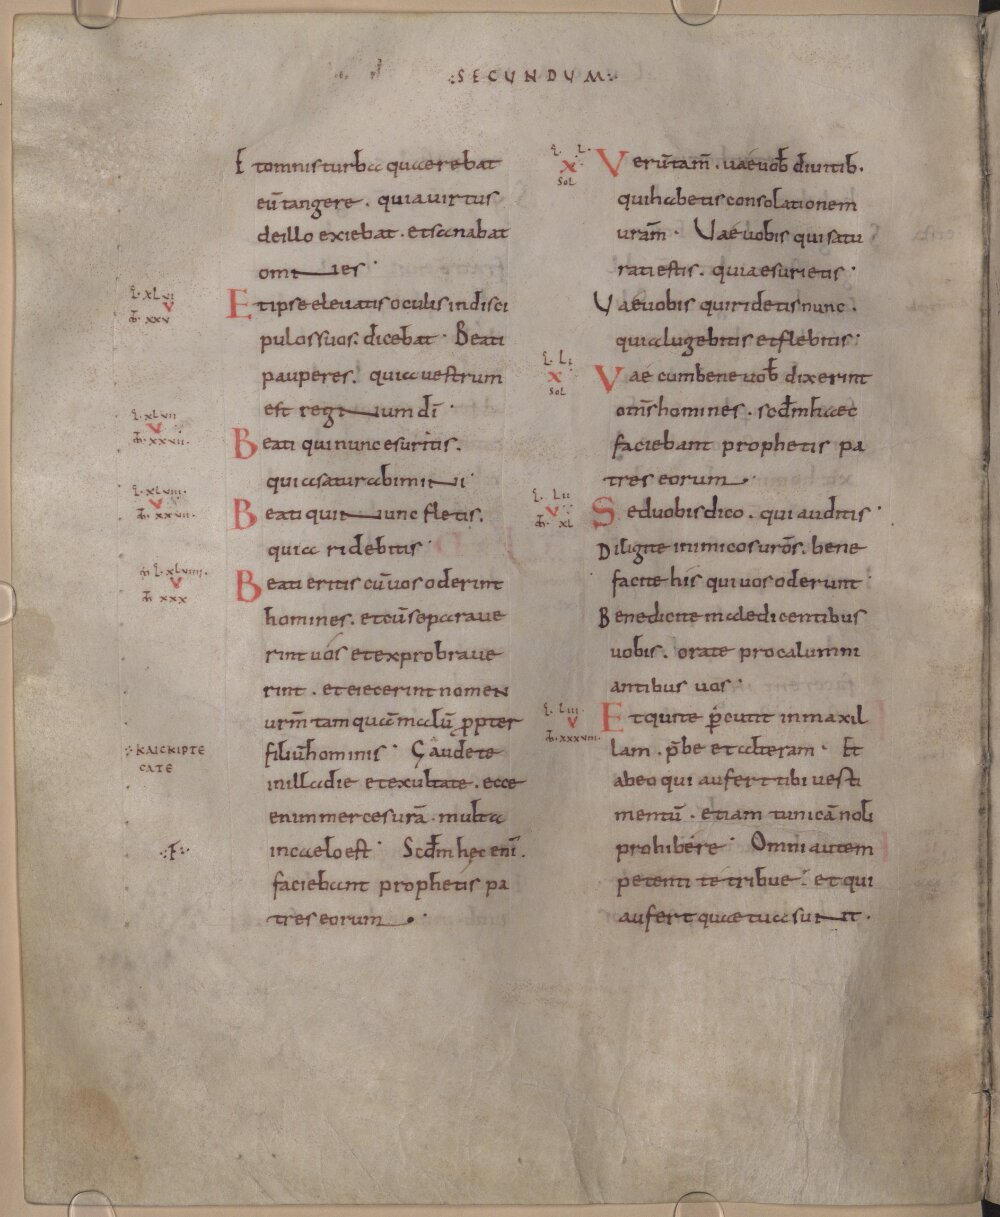 :SECUNDUM:
Et omnis turba quaerebat
eū tangere. quia virtus
de illo exiebat. et sanabat
omnes.
L. XLVI
V
M. XXV
Et ipse elevatis oculis in disci
pulos suos. dicebat. Beati
pauperes. quia vestrum
est regnum dī.
L. XLVII
V
M. XXVII
Beati qui nunc esuritis.
quia saturabimini.
L. XLVIII
V
M. XXVII
Beati qui nunc fletis.
quia ridebitis.
L. XLVIIII
V
M. XXX
Beati eritis cū vos oderint
homines. et cū separave
rint vos et exprobrave
rint. et eiecerint nomen
vrm̄ tam quam malū propter
filiū hominis. Gaudete
KAI SKIPTE
CATE
in illa die et exultate. ecce
enim merces vrā. multa
in caelo est. Scdm̄ hęc enī.
:F:
faciebant prophetis pa
tres eorum.
L. L.
X
SOL
Verūtam̄. vae vob̄ divitib.
qui habetis consolationem
vram̄. Vae vobis qui satu
rati estis. quia esurietis.
Vae vobis qui ridetis nunc.
quia lugebitis et flebitis.
L. LI
X
SOL
Vae cum bene vob̄ dixerint
oms̄ homines. scdm̄ haec
faciebant prophetis pa
tres eorum.
L. LII
V
M. XL
Sed vobis dico. qui auditis.
Diligite inimicos vrōs. bene
facite his qui vos oderunt.
Benedicite maledicentibus
vobis. orate pro calumni
antibus vos.
L. LIII
V
M. XXXVIII
Et qui te p̄cutit in maxil
lam. p̄be et alteram. Et
ab eo qui aufert tibi vesti
mentū. etiam tunicā noli
prohibere. Omni autem
petenti te tribue. et qui
aufert quae tua sunt.